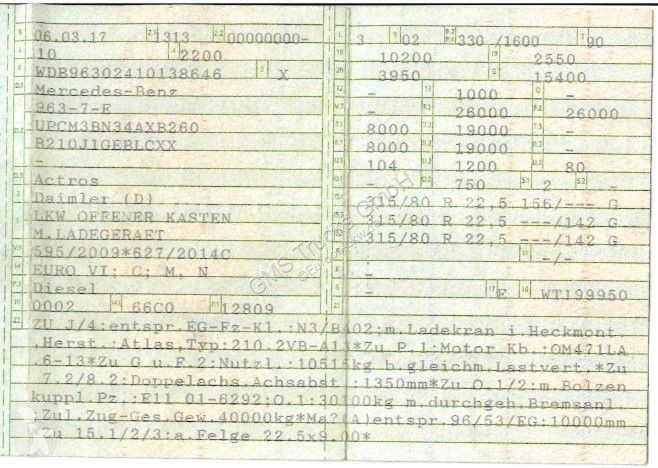 06.03.17 2.1 313 2.2 00000000-
10 2200
WDB96302410138646 X
Mercedes-Benz
963-7-E
UPCM3BN34AXB260
B210J1GEBLCXX
-
Actros
Daimler (D)
LKW OFFENER KASTEN
M.LADEGERAET
595/2009*627/2014C
EURO VI; G; M, N
Diesel
0002 66C0 12809
3 02 330 /1600 90
10200 2550
3950 15400
- 1000 -
- 26000 26000
8000 19000 -
8000 19000 -
104 1200 80
- 750 2 -
315/80 R 22,5 156/--- G
315/80 R 22,5 ---/142 G
315/80 R 22,5 ---/142 G
- -/-
-
- E WT199950
GMS Trucks GmbH
ZU J/4:entspr.EG-Fz-Kl.:N3/BA02;m.Ladekran i.Heckmont
.Herst.:Atlas,Typ:210.2VB-A13*Zu P.1:Motor Kb.:OM471LA
.6-13*Zu G u.F.2:Nutzl.:10515kg b.gleichm.Lastvert.*Zu
7.2/8.2:Doppelachs.Achsabst.:1350mm*Zu O.1/2:m.Bolzen
kuppl.Pz.:E11 01-6292;O.1:30100kg m.durchgeh.Bremsanl
.Zul.Zug-Ges.Gew.40000kg*Ma?(A)entspr.96/53/EG:10000mm
*Zu 15.1/2/3:a.Felge 22.5x9.00*